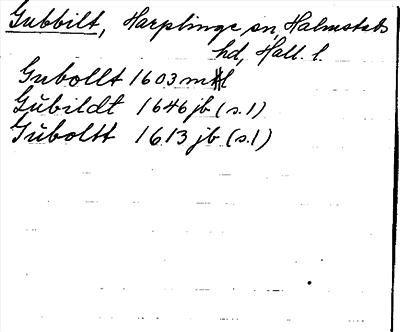 Gubbilt, Harplinge sn, Halmstads
hd, Hall. l.
Gubollt 1603 mtl
Gŭbildt 1646 jb (s. 1)
Gŭboltt 1613 jb (s. 1)